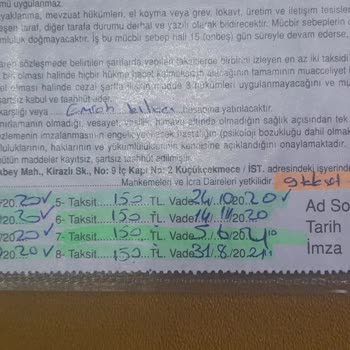 mü uygulanmaz.
yaklarına, mevzuat hükümleri, el koyma veya grev, lokavt, üretim ve iletişim tesisler
eşen taraf, diğer tarafa durumu derhal ve yazılı olarak bildirecektir. Mücbir sebeplerin
mluluk doğmayacaktır. İş bu mücbir sebep hali 15.(onbeş) gün süreyle devam ederse,
aren sözleşmede belirtilen şartlarda verilen taksitlerde birbirini izleyen en az iki taksidi
bir olması halinde hiçbir hükme hacet kalmaksızın alacağının tamamının muacceliyet
olması halinde cezai şarta ilişkin madde 8 hükümleri uygulanmayacağını ve mu
şartsız kabul ve taahhüt eder.
karşılığı veya hesabına yatırılacaktır.
nırlamanın olmadığı, vesayet altında olmadığın sağlık açısından tek
özlemenin imzalanmasını engelleyecek hastalığın (psikoloji bozukluğu dahil olmak
luluklarının, haklarının ve yükümlülüklerinin kendisine açıklandığını onaylamaktadır.
bütün maddeler kayıtsız, şartsız taahhüt edilmiştir.
kbey Mah., Kirazlı Sk., No: 9 İç Kapı No: 2 Küçükçekmece / İST. adresindeki işyerinde
Mahkemeleri ve İcra Daireleri yetkilidir.
/2020 5- Taksit 150 TL. Vade 24.10/2020
/2020 6- Taksit 150 TL. Vade 14.11/2020
/2020 7- Taksit 150 TL. Vade 5/6/2021
/2020 8- Taksit 150 TL. Vade 31/8/2021
Ad So
Tarih
İmza